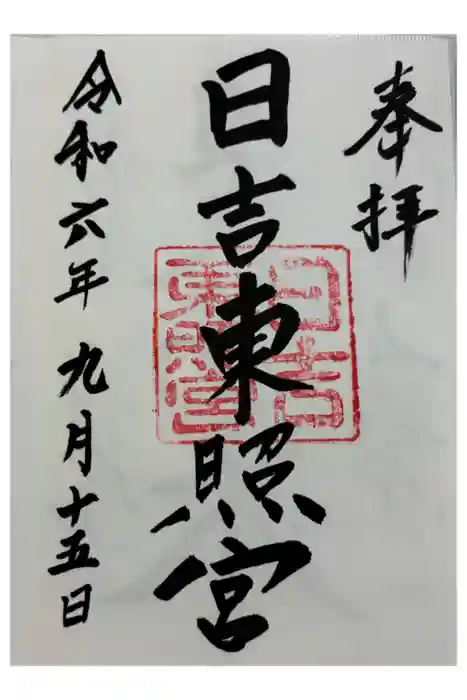 奉拝
日吉東照宮
日吉
東照宮
令和六年九月十五日